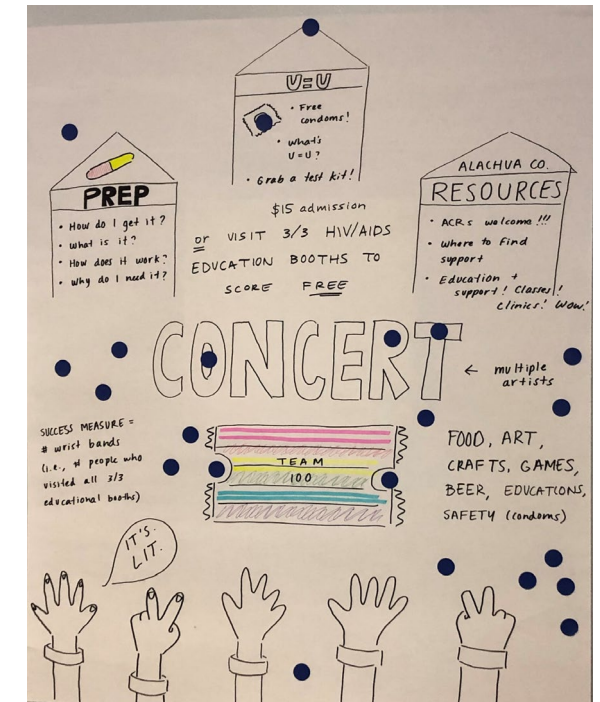 U=U
• Free
condoms!
• What's
U=U?
• Grab a test kit!
PREP
• How do I get it?
• What is it?
• How does it work?
• Why do I need it?
ALACHUA CO.
RESOURCES
• ACRs welcome!!!
• Where to find
support
• Education +
support! Classes!
Clinics! Wow!
$15 admission
or VISIT 3/3 HIV/AIDS
EDUCATION BOOTHS TO
SCORE FREE
CONCERT
← multiple
artists
SUCCESS MEASURE =
# wrist bands
(i.e., # people who
visited all 3/3
educational booths)
TEAM
100
FOOD, ART,
CRAFTS, GAMES,
BEER, EDUCATIONS,
SAFETY (condoms)
IT'S
LIT.